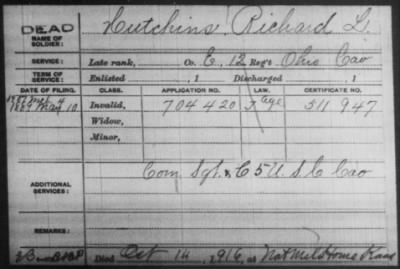 DEAD
NAME OF SOLDIER: Hutchins Richard L.
SERVICE: Late rank, Co. E, 12 Reg't Ohio Cav
TERM OF SERVICE: Enlisted , 1 Discharged , 1
DATE OF FILING. CLASS. APPLICATION NO. LAW. CERTIFICATE NO.
1887 4
1887 May 10 Invalid, 704 420 J Age 511 947
Widow,
Minor,
ADDITIONAL SERVICES: Com Sgt. C 5 U. S. C Cav
REMARKS:
Died Oct 14, 1916, at Nat Mil Home Kans